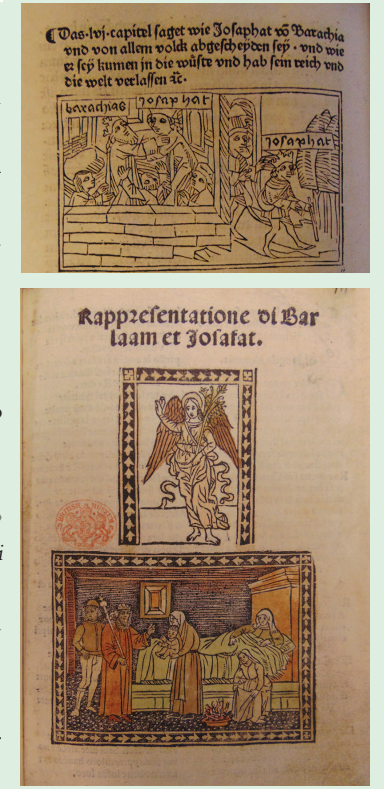 ¶ Das·lvj·capitel saget wie Josaphat vō Barachia
vnd von allem volck abgescheyden sey · vnd wie
er sey kumen in die wüste vnd hab sein reich vnd
die welt verlassen ⁊c̄·
barachias
josaphat
josaphat
Rappresentatione di Bar
laam et Josafat.